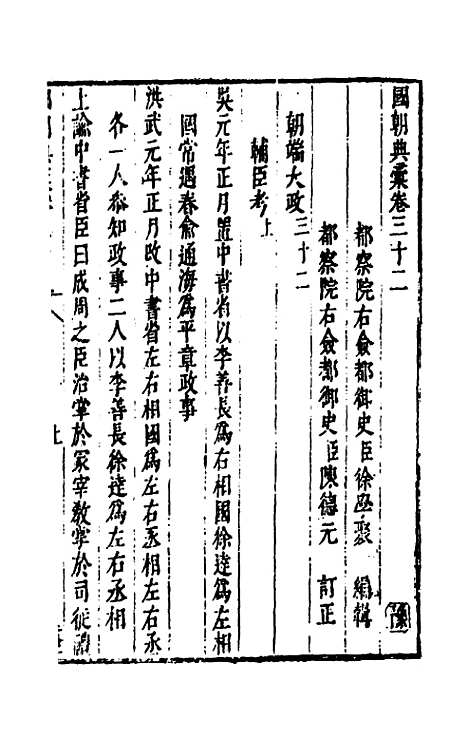 國朝典彙卷三十二
都察院右僉都御史臣徐學聚 編輯
都察院右僉都御史臣陳德元 訂正
朝端大政三十二
輔臣考上
吳元年正月置中書省以李善長為右相國徐達為左相
國常遇春俞通海為平章政事
洪武元年正月改中書省左右相國為左右丞相左右丞
各一人叅知政事二人以李善長徐達為左右丞相
上諭中書省臣曰成周之臣治掌於冡宰教掌於司徒禮